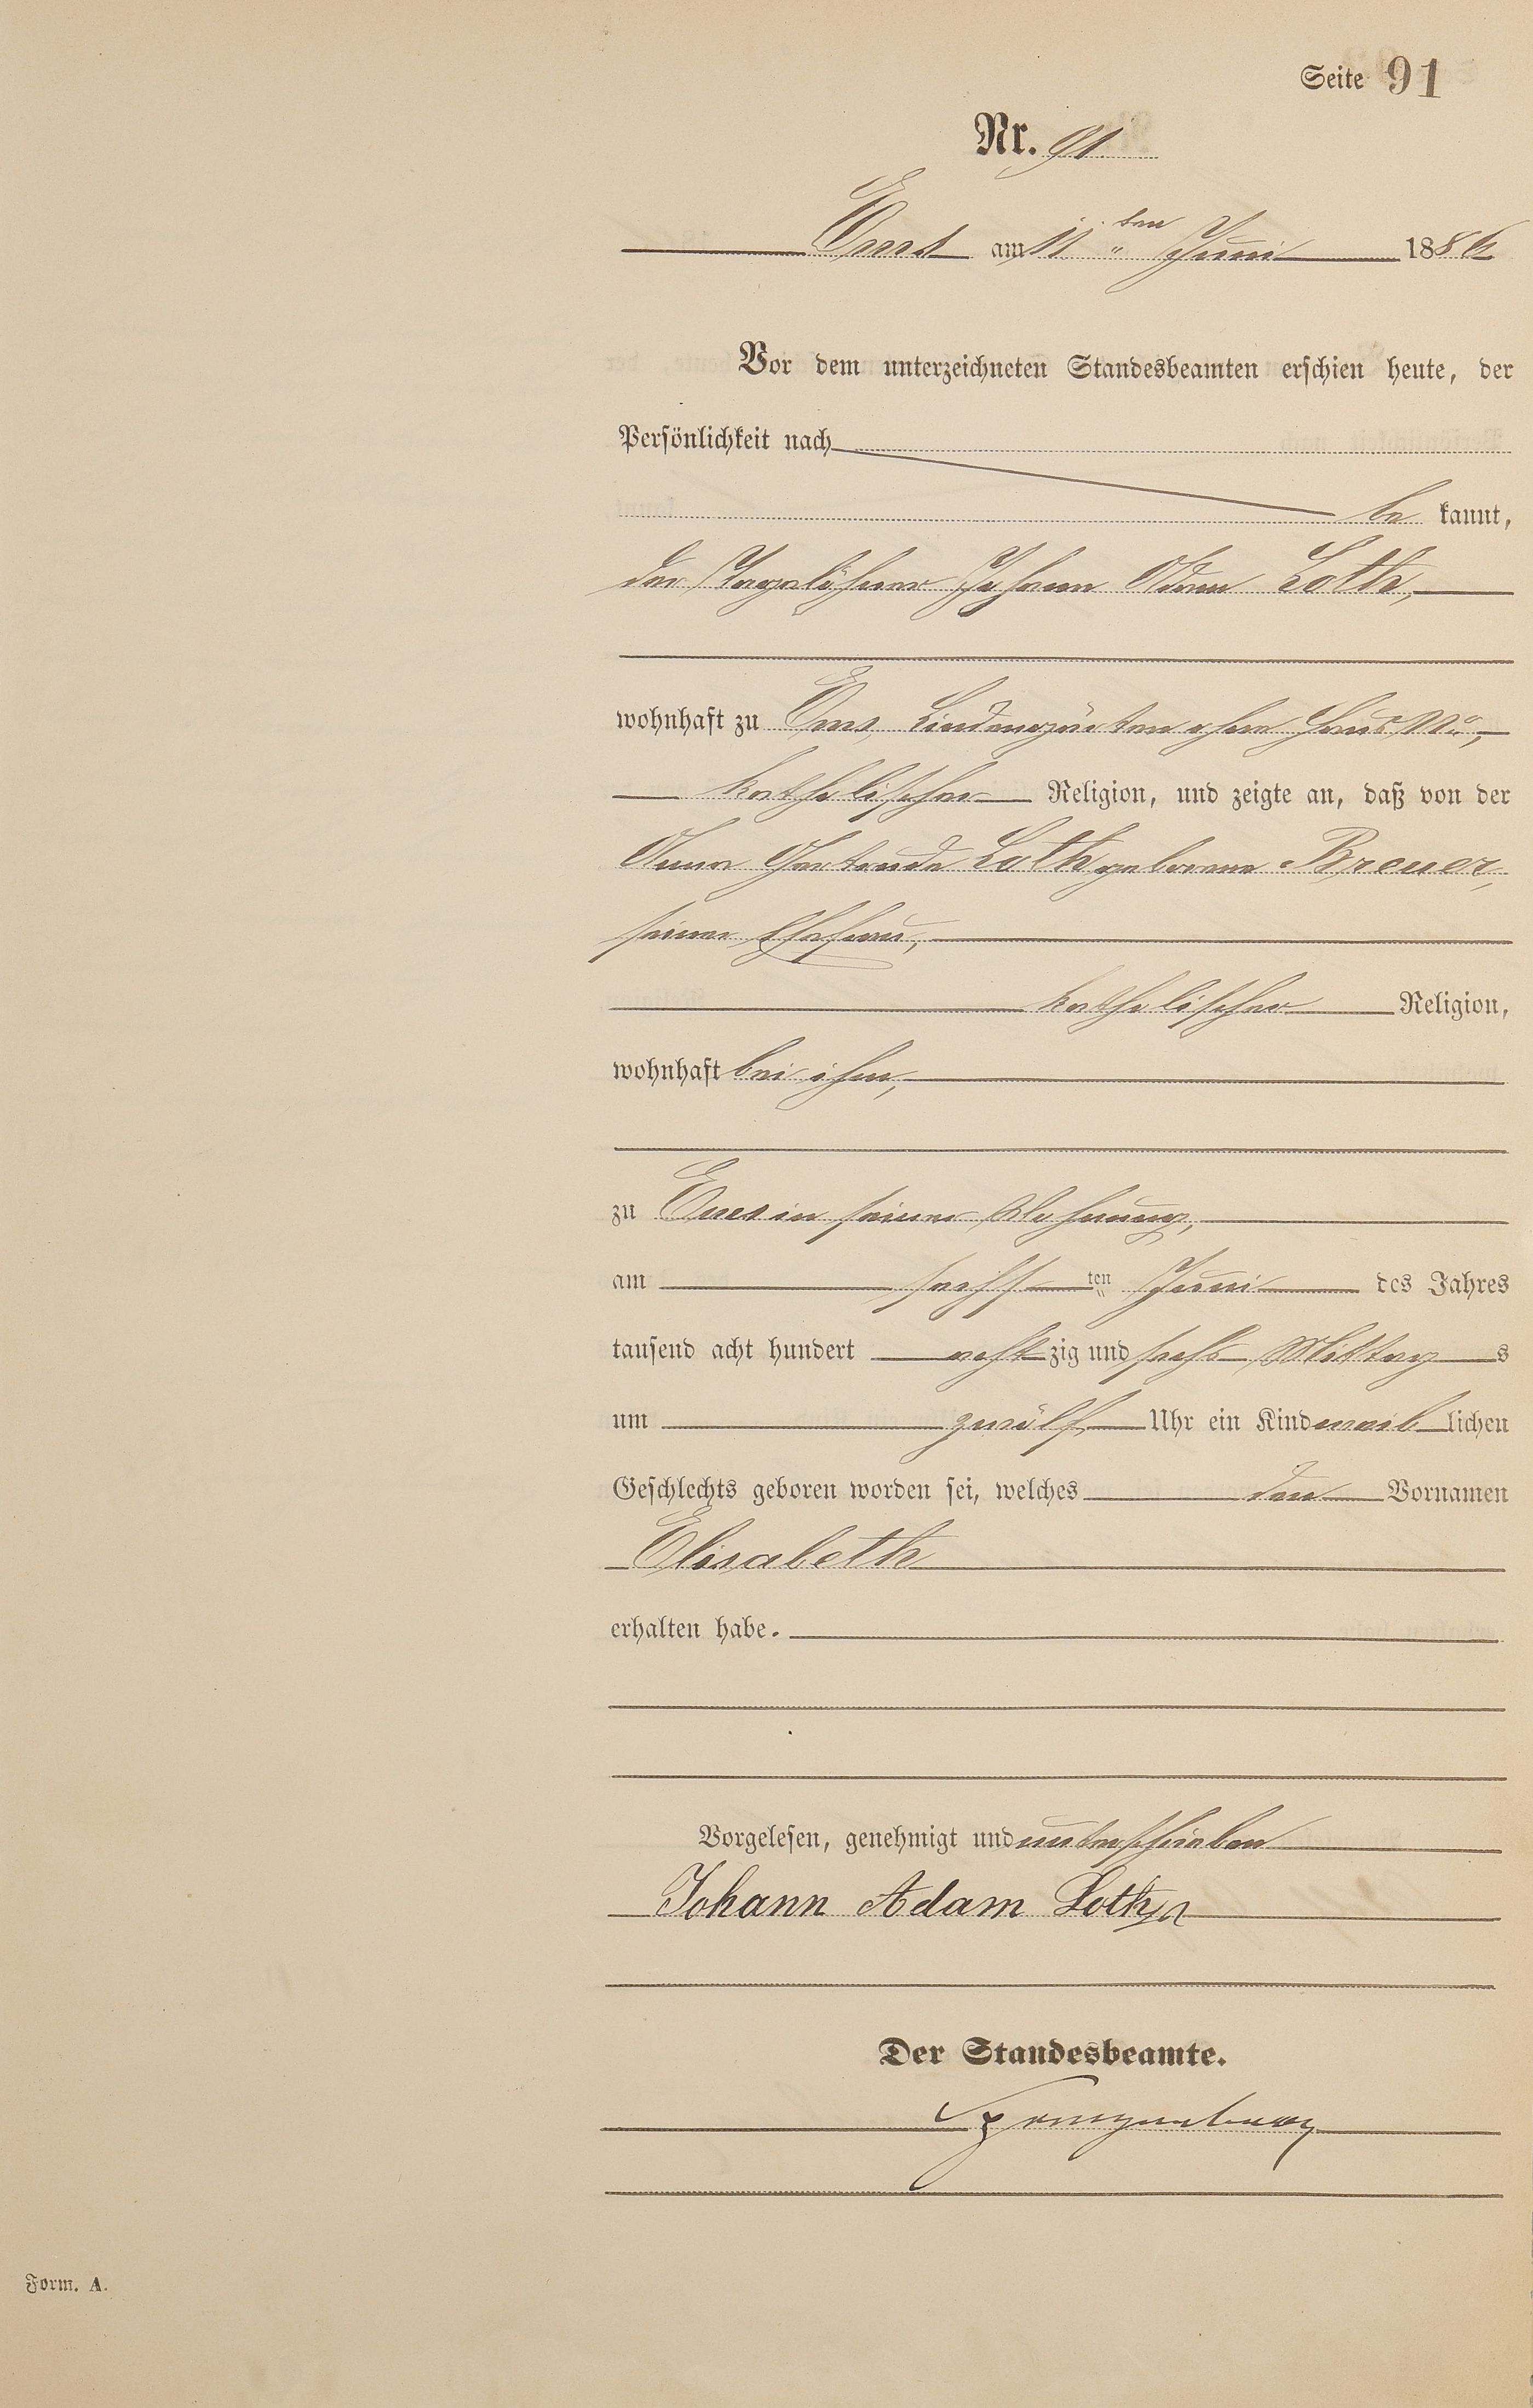 Seite 91
Nr. 91.
Ems am 11ten Juni 1886
Vor dem unterzeichneten Standesbeamten erschien heute, der
Persönlichkeit nach
be kannt,
der Tagelöhner Johann Adam Loth,
wohnhaft zu Ems, Lindengärten ohne Haus No,
katholischer Religion, und zeigte an, daß von der
Anna Gertrude Loth geborene Breuer,
seiner Ehefrau,
katholischer Religion,
wohnhaft bei ihm,
zu Ems in seiner Wohnung,
am sechsten Juni des Jahres
tausend acht hundert acht zig und sechs Mittags
um zwölf Uhr ein Kind weiblichen
Geschlechts geboren worden sei, welches den Vornamen
Elisabeth
erhalten habe.
Vorgelesen, genehmigt und unterschrieben
Johann Adam Loth
Der Standesbeamte.
Form. A.